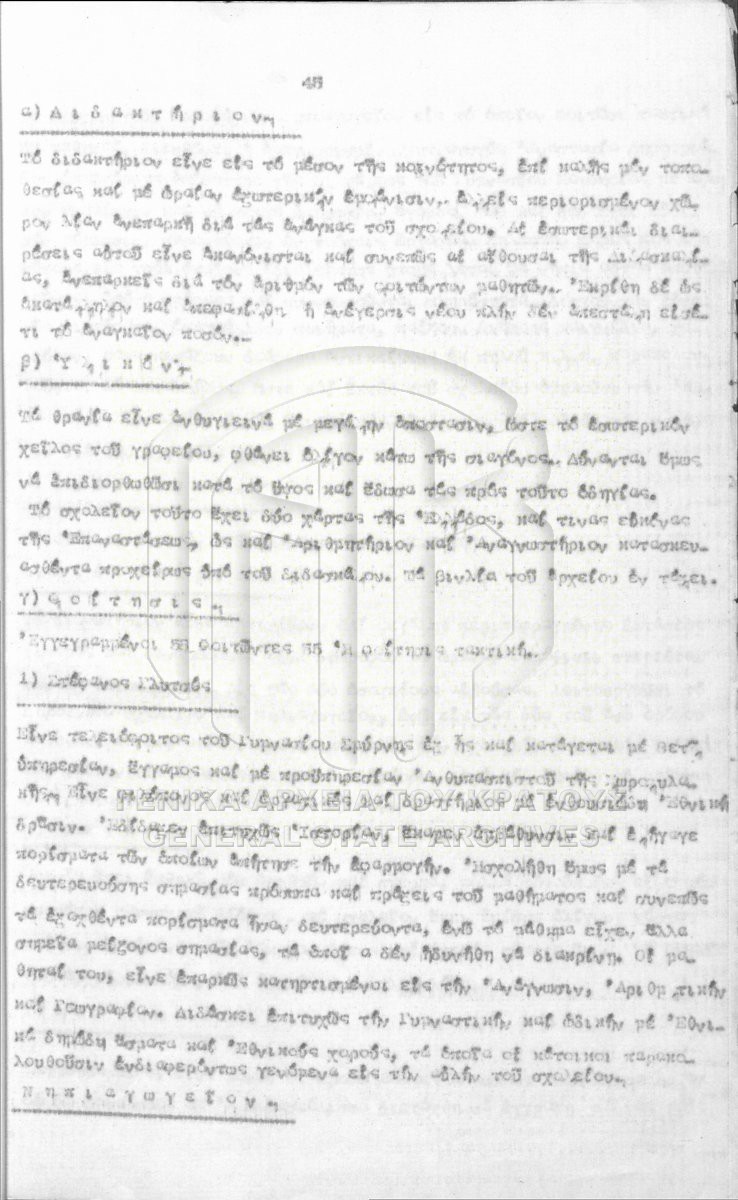 48
α) Δ ι δ α κ τ ή ρ ι ο ν.-
Τό διδακτήριον εἶνε εἰς τό μέσον τῆς κοινότητος, ἐπί καλῆς μέν τοπο-
θεσίας καί μέ ὡραίαν ἐξωτερικήν ἐμφάνισιν,. ἀλλ'εἰς περιορισμένον χῶ-
ρον λίαν ἀνεπαρκῆ διά τάς ἀνάγκας τοῦ σχολείου. Αἱ ἐσωτερικαί διαι-
ρέσεις αὐτοῦ εἶνε ἀκανόνισται καί συνεπῶς αἱ αἴθουσαι τῆς Διδασκαλί-
ας, ἀνεπαρκεῖς διά τόν ἀριθμόν τῶν φοιτώντων μαθητῶν.. Ἐκρίθη δέ ὡς
ἀκατάλληλον καί ἀπεφασίσθη ἡ ἀνέγερσις νέου πλήν δέν ἀπεστάλη εἰσέ-
τι τό ἀναγκαῖον ποσόν.-
β) Ὑ λ ι κ ό ν.-
Τά θρανία εἶνε ἀνθυγιεινά μέ μεγάλην ἀπόστασιν, ὥστε τό ἐσωτερικόν
χεῖλος τοῦ γραφείου, φθάνει ὀλίγον κάτω τῆς σιαγόνος.. Δύνανται ὅμως
νά ἐπιδιορθωθῶσι κατά τό ὕψος καί ἔδωσα τάς πρός τοῦτο ὁδηγίας.
Τό σχολεῖον τοῦτο ἔχει δύο χάρτας τῆς Ἑλλάδος, καί τινας εἰκόνας
τῆς Ἐπαναστάσεως, ὡς καί Ἀριθμητήριον καί Ἀναγνωστήριον κατασκευ-
ασθέντα προχείρως ὑπό τοῦ διδασκάλου. Τά βιβλία τοῦ ἀρχείου ἐν τάξει.
γ) Φ ο ί τ η σ ι ς.-
Ἐγγεγραμμένοι φοιτῶντες Ἡ φοίτησις τακτική.
1) Στέφανος Γλυτσός
Εἶνε τελειόφοιτος τοῦ Γυμνασίου Σμύρνης ἐξ ἧς καί κατάγεται μέ
ὑπηρεσίαν, ἔγγαμος καί μέ προϋπηρεσίαν Ἀνθυπασπιστοῦ τῆς Χωροφυλα-
κῆς. Εἶνε φιλόπονος καί ἐργατικός καί δραστήριος μέ ἐνθουσιώδη Ἐθνικήν
δρᾶσιν. Ἐδίδαξεν ἐπιτυχῶς Ἱστορίαν, ἔκαμεν ἐμβάθυνσιν καί ἐξήγαγε
πορίσματα τῶν ὁποίων ἀπῄτησε τήν ἐφαρμογήν. Ἠσχολήθη ὅμως μέ τά
δευτερευούσης σημασίας πρόσωπα καί πράξεις τοῦ μαθήματος καί συνεπῶς
τά ἐξαχθέντα πορίσματα ἦσαν δευτερεύοντα, ἐνῷ τό μάθημα εἶχεν ἄλλα
σημεῖα μείζονος σημασίας, τά ὁποῖα δέν ἠδυνήθη νά διακρίνῃ. Οἱ μα-
θηταί του, εἶνε ἐπαρκῶς κατηρτισμένοι εἰς τήν Ἀνάγνωσιν, Ἀριθμητικήν
καί Γεωγραφίαν. Διδάσκει ἐπιτυχῶς τήν Γυμναστικήν καί ᾠδικήν μέ Ἐθνι-
κά δημώδη ᾄσματα καί Ἐθνικούς χορούς, τά ὁποῖα οἱ κάτοικοι παρακο-
λουθοῦσιν ἐνδιαφερόντως γενόμενα εἰς τήν αὐλήν τοῦ σχολείου.-
Ν η π ι α γ ω γ ε ῖ ο ν.-
ΓΕΝΙΚΑ ΑΡΧΕΙΑ ΤΟΥ ΚΡΑΤΟΥΣ
GENERAL STATE ARCHIVES